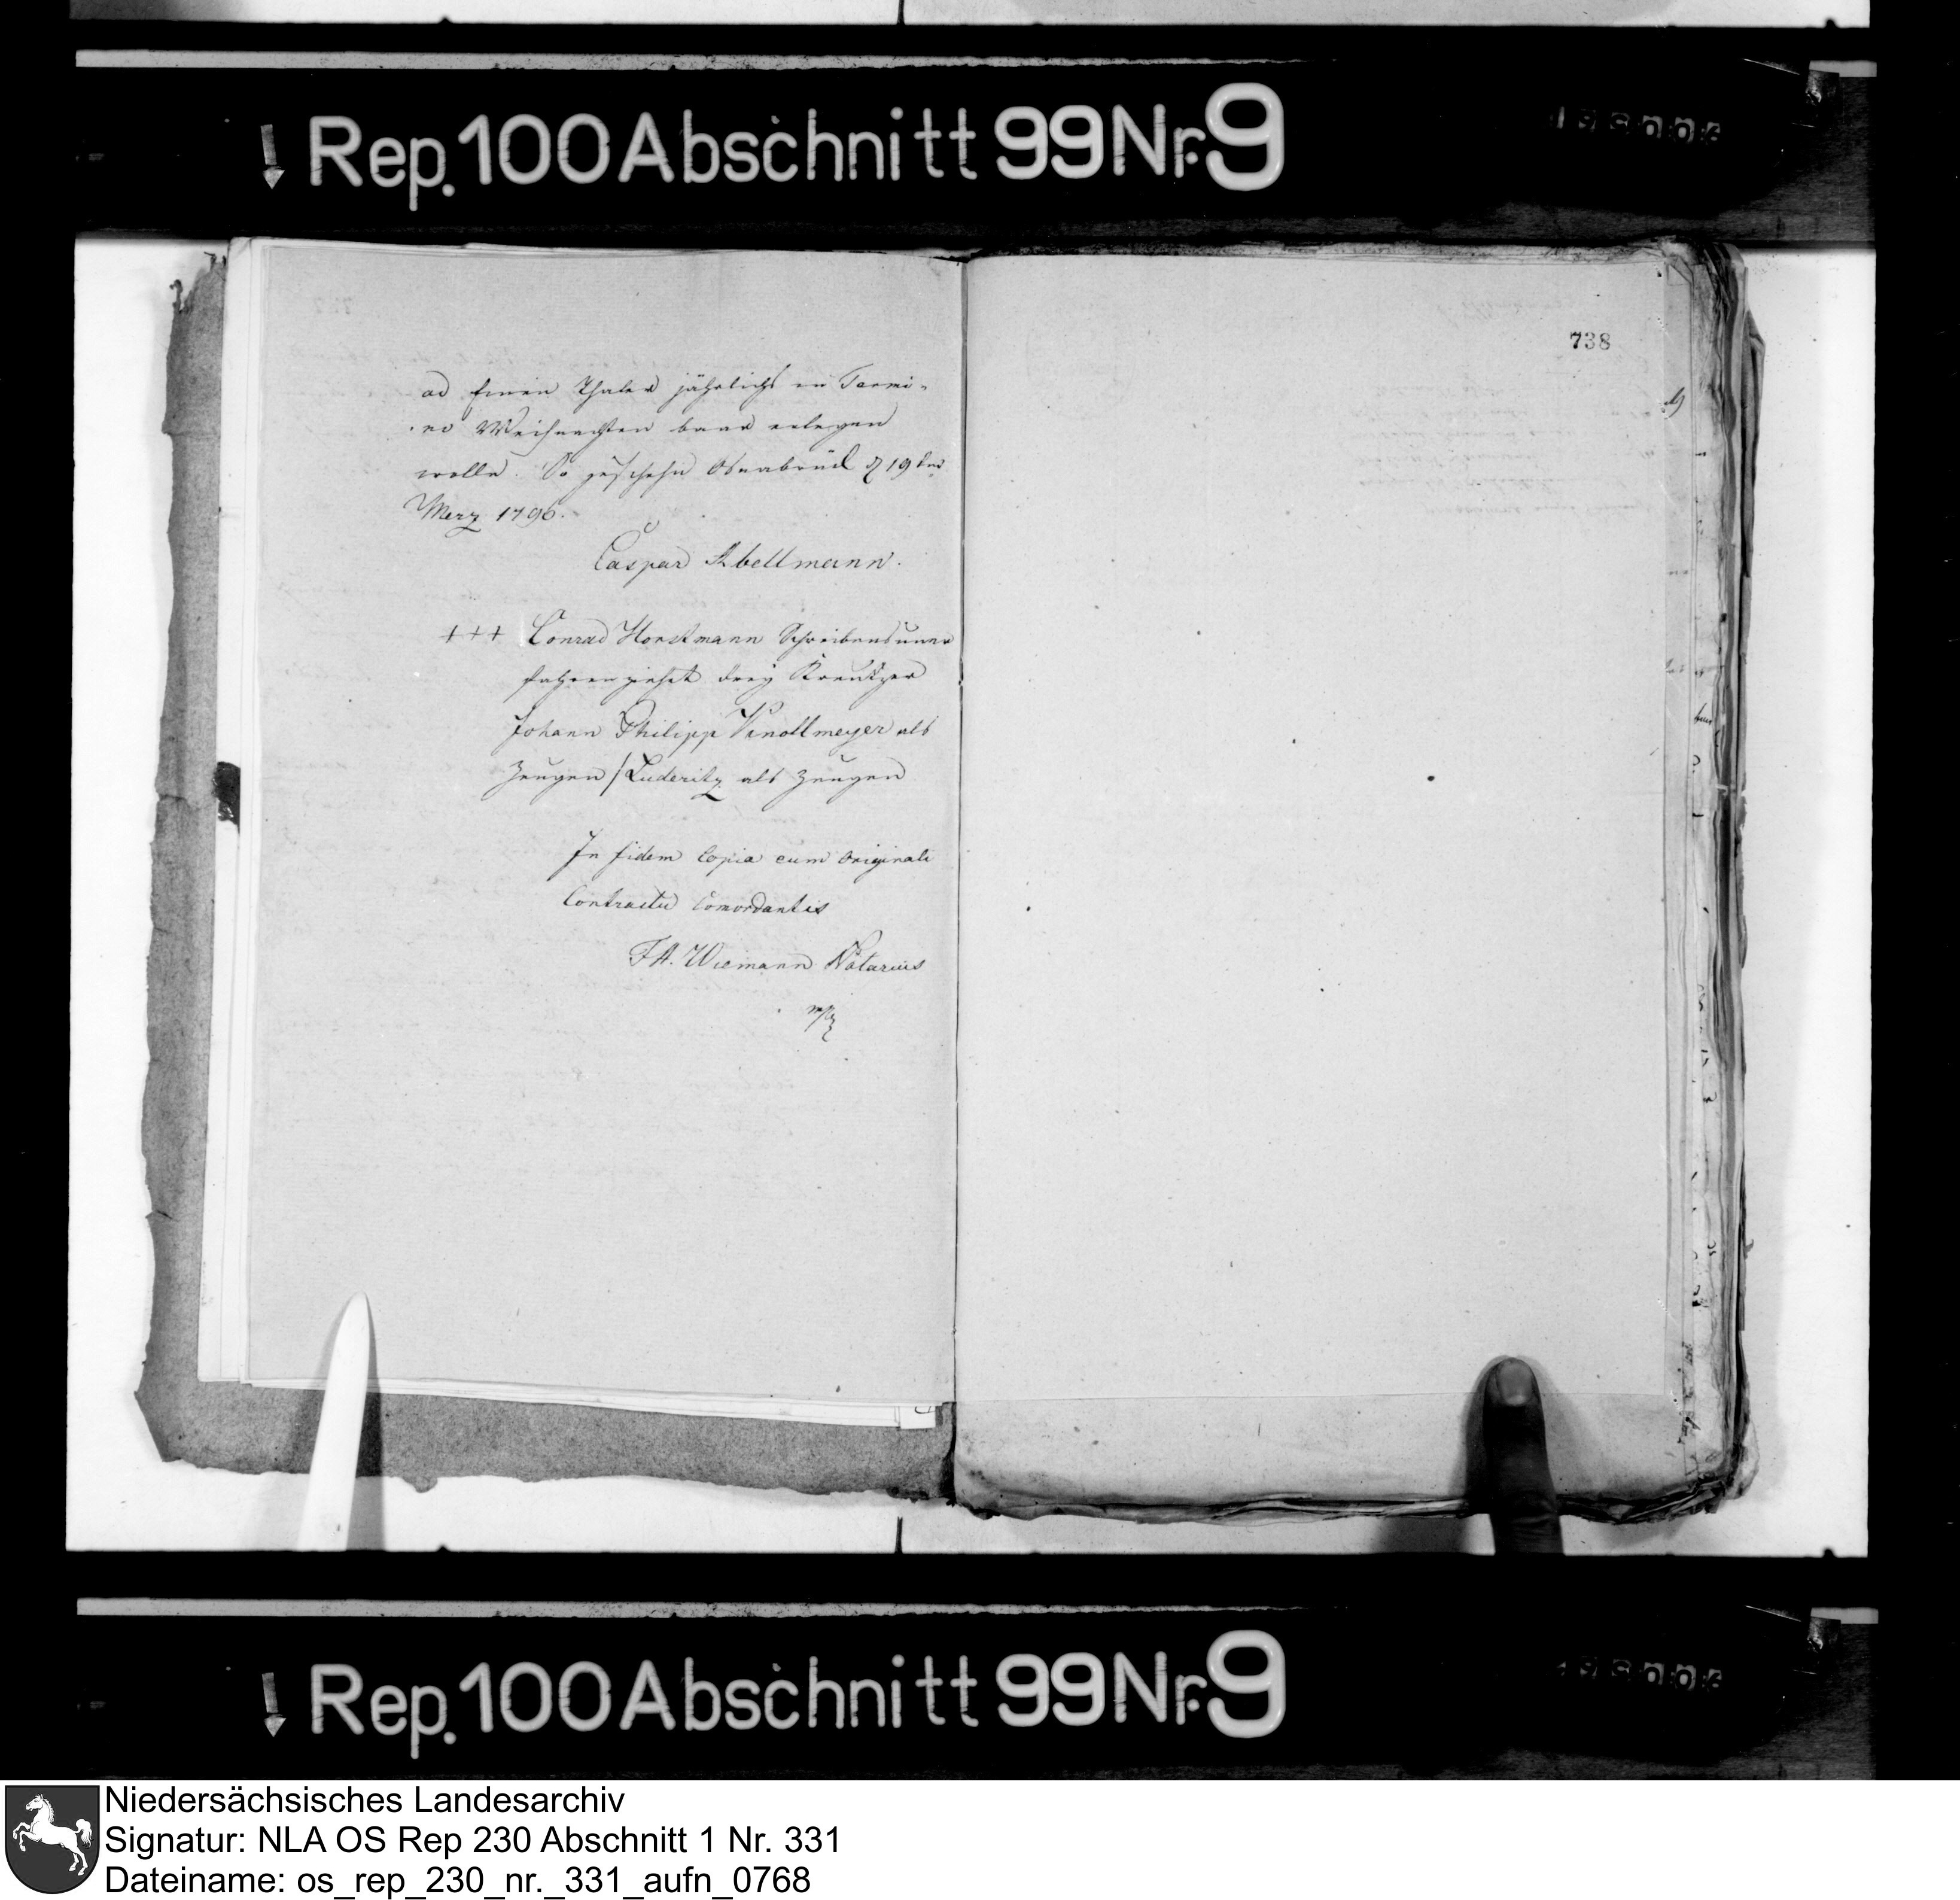 Rep. 100 Abschnitt 99 Nr. 9
ad Einen Thaler jährlichs in Termi-
no Weihnachten baar erlegen
wolle. So geschehn Osnabrück d 19ten
Merz 1796.
Caspar Abellmann.
+++ Conrad Horstmann Schreibensuner
fahren ziehet dreÿ Kreutzer
Johann Philipp Knollmeyer als
Zeugen / Luderitz als Zeugen
In fidem Copia cum Originali
Contractu Concordantis
FA. Wiemann Notarius
mp
738
Rep. 100 Abschnitt 99 Nr. 9
Niedersächsisches Landesarchiv
Signatur: NLA OS Rep 230 Abschnitt 1 Nr. 331
Dateiname: os_rep_230_nr._331_aufn_0768